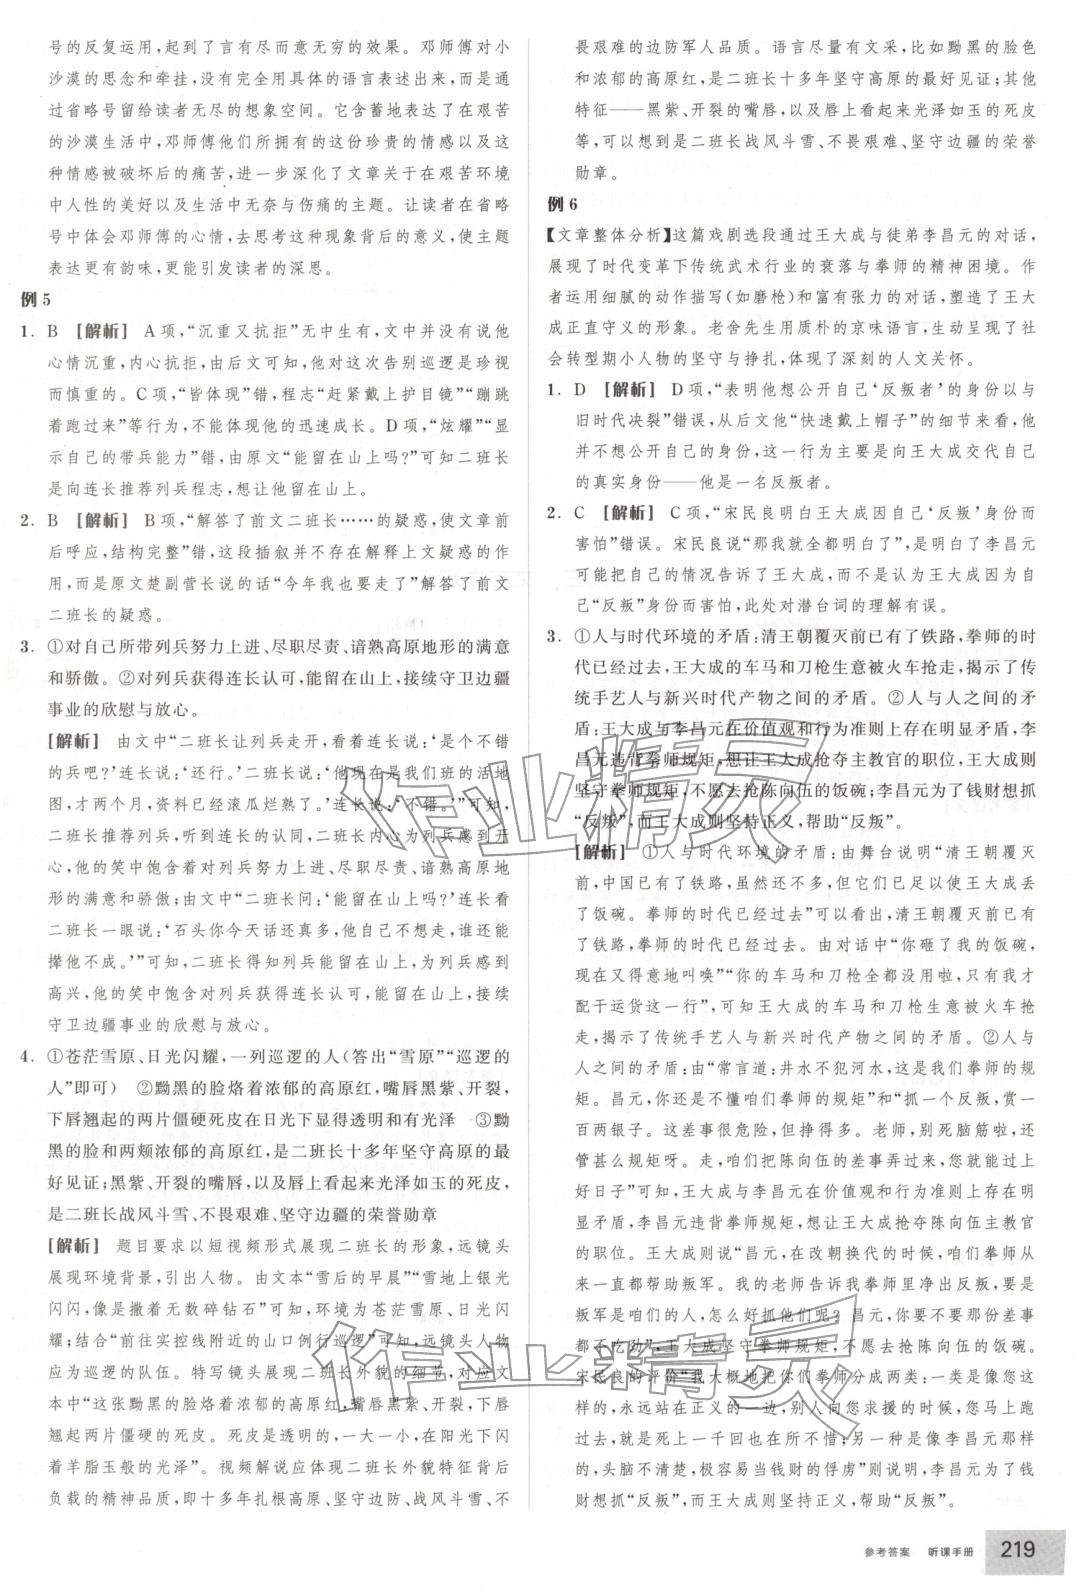 号的反复运用，起到了言有尽而意无穷的效果。邓师傅对小
沙漠的思念和牵挂，没有完全用具体的语言表述出来，而是通
过省略号留给读者无尽的想象空间。它含蓄地表达了在艰苦
的沙漠生活中，邓师傅他们所拥有的这份珍贵的情感以及这
种情感被破坏后的痛苦，进一步深化了文章关于在艰苦环境
中人性的美好以及生活中无奈与伤痛的主题。让读者在省略
号中体会邓师傅的心情，去思考这种现象背后的意义，使主题
表达更有韵味，更能引发读者的深思。
例 5
1. B [解析] A项，“沉重又抗拒”无中生有，文中并没有说他
心情沉重，内心抗拒，由后文可知，他对这次告别巡逻是珍视
而慎重的。C项，“皆体现”错，程志“赶紧戴上护目镜”“蹦跳
着跑过来”等行为，不能体现他的迅速成长。D项，“炫耀”“显
示自己的带兵能力”错，由原文“能留在山上吗？”可知二班长
是向连长推荐列兵程志，想让他留在山上。
2. B [解析] B项，“解答了前文二班长……的疑惑，使文章前
后呼应，结构完整”错，这段插叙并不存在解释上文疑惑的作
用，而是原文楚副营长说的话“今年我也要离开了”解答了前文
二班长的疑惑。
3. ①对自己所带列兵努力上进、尽职尽责、谙熟高原地形的满意
和骄傲。②对列兵获得连长认可，能留在山上，接续守卫边疆
事业的欣慰与放心。
[解析] 由文中“二班长让列兵走开，看着连长说：‘是个不错
的兵吧？’连长说：‘还行。’二班长说：‘他现在是我们班的活地
图，才两个月，资料已经滚瓜烂熟了。’连长说：‘不错。’”可知，二
班长推荐列兵，听到连长的认同，二班长内心为列兵感到高
兴，他的笑中饱含着对列兵努力上进、尽职尽责、谙熟高原地
形的满意和骄傲；由文中“二班长问：‘能留在山上吗？’连长看
二班长一眼说：‘石头你今天话还真多，他自己不想走，谁还能
撵他不成。’”可知，二班长得知列兵能留在山上，为列兵感到
高兴，他的笑中饱含对列兵获得连长认可，能留在山上，接续
守卫边疆事业的欣慰与放心。
4. ①苍茫雪原、日光闪耀，一列巡逻的人（答出“雪原”“巡逻的
人”即可） ②黝黑的脸烙着浓郁的高原红，嘴唇黑紫、开裂，
下唇翘起的两片僵硬死皮在日光下显得透明和有光泽 ③黝
黑的脸和两颊浓郁的高原红，是二班长十多年坚守高原的最
好见证；黑紫、开裂的嘴唇，以及唇上看起来光泽如玉的死皮，
是二班长战风斗雪、不畏艰难、坚守边疆的荣誉勋章
[解析] 题目要求以短视频形式展现二班长的形象，远镜头
展现环境背景，引出人物。由文本“雪后的早晨”“雪地上银光
闪闪，像是撒着无数碎钻石”可知，环境为苍茫雪原、日光闪
耀；结合“前往实控线附近的山口例行巡逻”可知，远镜头人物
应为巡逻的队伍。特写镜头展现二班长外貌的细节，对应文
本中“这张黝黑的脸烙着浓郁的高原红，嘴唇黑紫、开裂，下唇
翘起两片僵硬的死皮。死皮是透明的，一大一小，在阳光下闪
着羊脂玉般的光泽”。视频解说应体现二班长外貌特征背后
负载的精神品质，即十多年扎根高原、坚守边防、战风斗雪、不
畏艰难的边防军人品质。语言尽量有文采，比如黝黑的脸色
和浓郁的高原红，是二班长十多年坚守高原的最好见证；其他
特征——黑紫、开裂的嘴唇，以及唇上看起来光泽如玉的死皮
等，可以想到是二班长战风斗雪、不畏艰难、坚守边疆的荣誉
勋章。
例 6
【文章整体分析】这篇戏剧选段通过王大成与徒弟李昌元的对话，
展现了时代变革下传统武术行业的衰落与拳师的精神困境。作
者运用细腻的动作描写（如磨枪）和富有张力的对话，塑造了王大
成正直守义的形象。老舍先生用质朴的京味语言，生动呈现了社
会转型期小人物的坚守与挣扎，体现了深刻的人文关怀。
1. D [解析] D项，“表明他想公开自己‘反叛者’的身份以与
旧时代决裂”错误，从后文他“快速戴上帽子”的细节来看，他
并不想公开自己的身份，这一行为主要是向王大成交代自己
的真实身份——他是一名反叛者。
2. C [解析] C项，“宋民良明白王大成因自己‘反叛’身份而
害怕”错误。宋民良说“那我就全都明白了”，是明白了李昌元
可能把自己的情况告诉了王大成，而不是明白王大成因自己
“反叛”身份而害怕，此处对潜台词的理解有误。
3. ①人与时代环境的矛盾：清王朝覆灭前已有了铁路，拳师的时
代已经过去，王大成的车马和刀枪生意被火车抢走，揭示了传
统手艺人与新兴时代产物之间的矛盾。②人与人之间的矛
盾：王大成与李昌元在价值观和行为准则上存在明显分歧，李
昌元违背拳师规矩，想让王大成抢夺主教官的职位，王大成则
坚守拳师规矩，不愿去抢陈向伍的饭碗；李昌元为了钱财想抓
“反叛”，而王大成则坚持正义，帮助“反叛”。
[解析] ①人与时代环境的矛盾：由舞台说明“清王朝覆灭
前，中国已有了铁路，虽然还不多，但已足以使保镖的王大成丢
了饭碗。拳师的时代已经过去”可以看出，清王朝覆灭前已有
了铁路，拳师的时代已经过去。由对话中“你砸了我的饭碗，
现在又得意地叫唤”“你的车马和刀枪全都没用啦，只有我才
配干运货这一行”，可知王大成的车马和刀枪生意被火车抢
走，揭示了传统手艺人与新兴时代产物之间的矛盾。②人与人
之间的矛盾：由“常言道：井水不犯河水，这是我们拳师的规
矩。昌元，你还是不懂咱们拳师的规矩”和“抓一个反叛，赏一
百两银子。这差事很危险，但挣得多。老师，别死脑筋啦，还
管甚么规矩呀。走，咱们把陈向伍的差事弄过来，您就能过上
好日子”可知，王大成与李昌元在价值观和行为准则上存在明
显矛盾，李昌元违背拳师规矩，想让王大成抢夺陈向伍主教官
的职位。王大成则说“昌元，在改朝换代的时候，咱们拳师从
来一直都帮助叛军。我的老师告诉我拳师里净出反叛，要是
叛军是咱们的人，怎么好抓他们呢？昌元，你要不要那份差事
都不吃劲”，王大成坚守拳师规矩，不愿去抢陈向伍的饭碗。
宋民良的评价“我大概地把你们拳师分作两类：一类是像您这
样的，永远站在正义的一边；别人向您求援的时候，您马上跑
去，那怕跑上一千回也在所不惜；另一种是像李昌元这样
的，头脑不清楚，极容易当金钱的俘虏”则说明，李昌元为了钱
财想抓“反叛”，而王大成则坚持正义，帮助“反叛”。
作业精灵
作业精灵
参考答案 听课手册 219